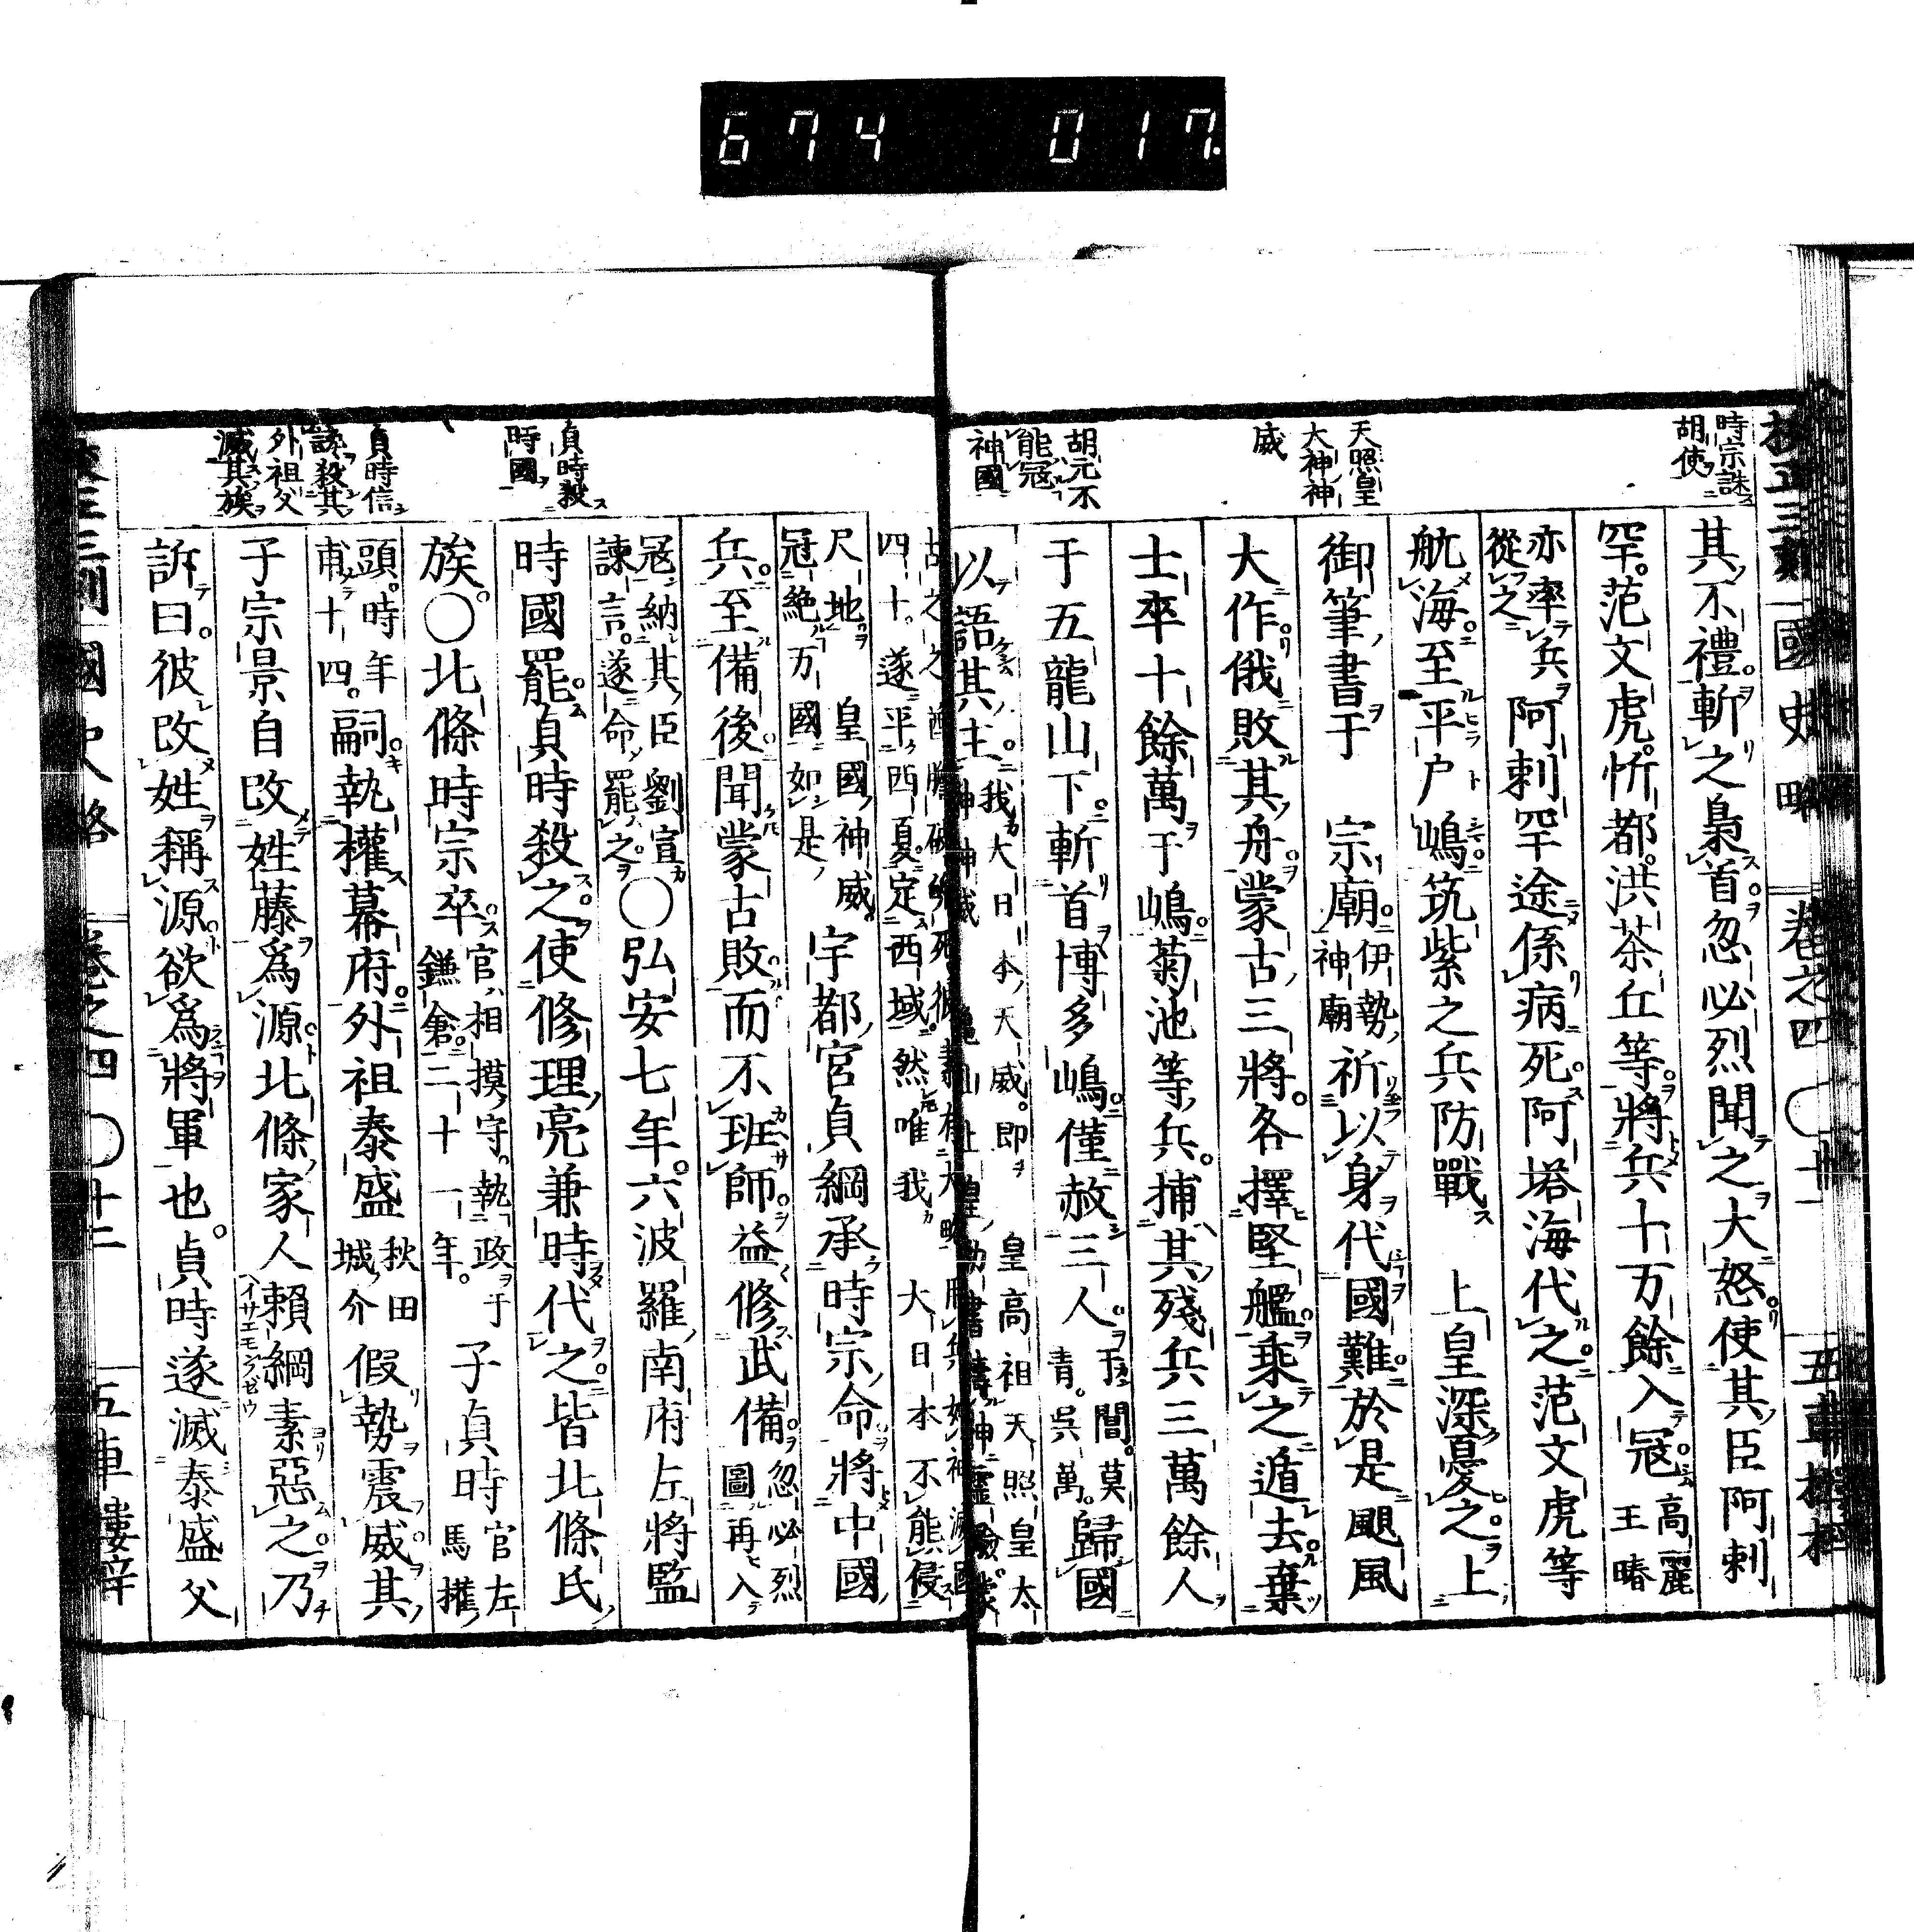 674 017.
時宗誅
胡使
天照皇
大神神
威
胡元不
能冦
神國
其不禮斬之梟首忽必烈聞之大怒使其臣阿剌
罕范文虎忻都洪茶丘等將兵十万餘入冦高麗王暙
亦率兵從之阿剌罕途係病死阿塔海代之范文虎等
航海至平戸嶋筑紫之兵防戰 上皇深憂之上
御筆書于 宗廟伊勢神廟祈以身代國難於是颶風
大作俄敗其舟蒙古三將各擇堅艦乘之遁去棄
士卒十餘萬于嶋菊池等兵捕其残兵三萬餘人
于五龍山下斬首博多嶋僅赦三人于閶莫青呉萬歸國
以語其主我大日本天威即 皇高祖天照皇太
四十遂平西夏定西域然唯我 大日本不能侵
尺地 皇國神威 宇都宮貞綱承時宗命將中國
冠絶万國如是
兵至備後聞蒙古敗而不班師益修武備忽必烈圖再入
冦納其臣劉宣諫言遂命罷之○弘安七年六波羅南府左將監
時國罷貞時殺之使修理亮兼時代之皆北條氏
族○北條時宗卒官相摸守執政于鎌倉二十一年子貞時官左馬權
頭時年甫十四嗣執權幕府外祖泰盛秋田城介假勢震威其
子宗景自改姓藤爲源北條家人頼綱素惡之乃
訴曰彼改姓稱源欲爲將軍也貞時遂滅泰盛父
貞時殺
時國
貞時信
讒殺其
外祖父
滅其族
國史略 卷之四
卷之四 ○廿二 五車樓梓